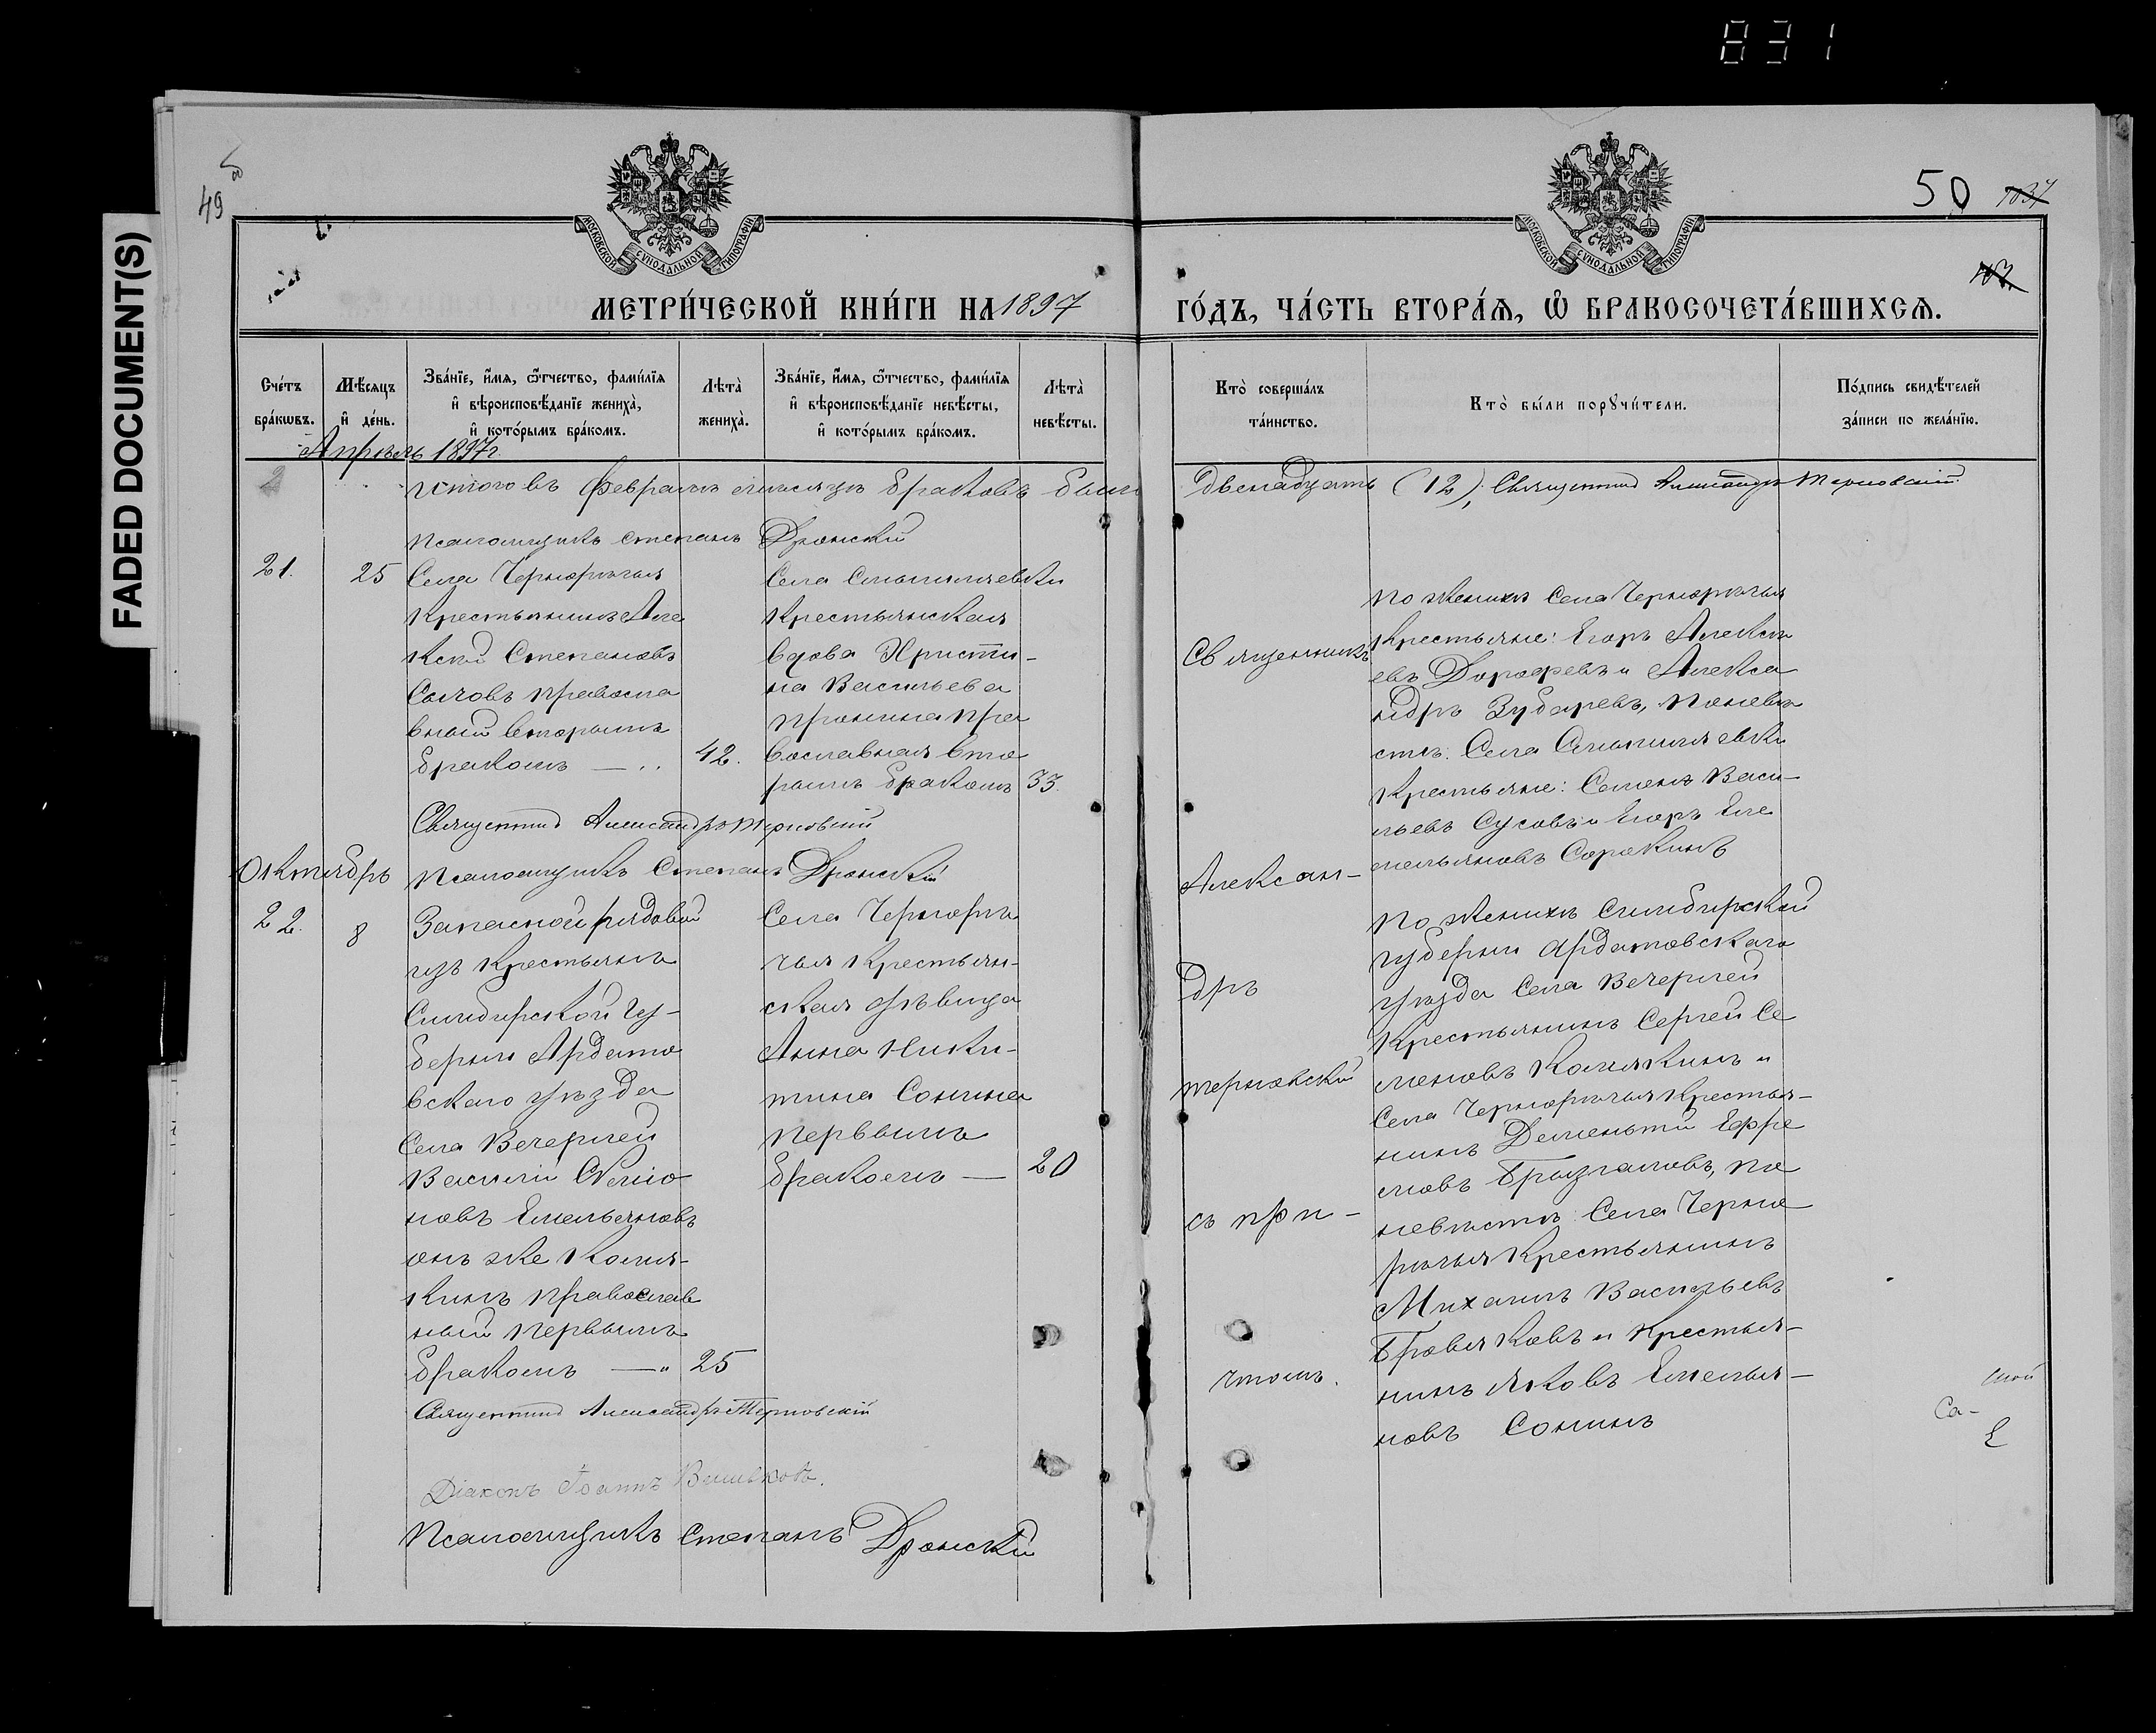 831
FADED DOCUMENT(S)
49
50
МОСКОВСКОЙ СУНОДАЛЬНОЙ ТИПОГРАФІИ
МОСКОВСКОЙ СУНОДАЛЬНОЙ ТИПОГРАФІИ
МЕТРИ́ЧЕСКОЙ КНИ́ГИ НА 1897 ГО́ДЪ, ЧА́СТЬ ВТОРА́Ѧ, Ѽ БРАКОСОЧЕТА́ВШИХСѦ.
Сче́тъ бра́кωвъ.
Мѣ́сяцъ и҆ де́нь.
Зва́нїе, и҆́мя, ѻ҆́тчество, фами́лїя
и҆ вѣроисповѣ́данїе жениха̀,
и҆ кото́рымъ бра́комъ.
Лѣта̀ жениха̀.
Зва́нїе, и҆́мя, ѻ҆́тчество, фами́лїя
и҆ вѣроисповѣ́данїе невѣ́сты,
и҆ кото́рымъ бра́комъ.
Лѣта̀ невѣ́сты.
Кто̀ соверша́лъ та́инство.
Кто̀ бы́ли порꙋчи́тели.
По́дпись свидѣ́телей за́писи по жела́нїю.
Апрѣль 1897г
Итого въ Февралѣ мѣсяцѣ браковъ было Двенадцать (12), Священникъ Александръ Терновскій
Псаломщикъ Степанъ Дронскій
21.
25
Села Чернорѣчья
Крестьянинъ Але
ксѣй Степановъ
Сычовъ православ
вный вторымъ
бракомъ — 42.
Села Смышляевки
Крестьянская
вдова Христи-
на Васильева
Пронина пра
вославная вто
рымъ бракомъ 33.
Священникъ
По женихѣ Села Чернорѣчья
Крестьяне: Егоръ Алексѣ
евъ Дорофеевъ и Алекса
ндръ Зубаревъ, По невѣ
стѣ: Села Смышляевки
Крестьяне: Семенъ Васи-
льевъ Сусовъ и Егоръ Еме
мельяновъ Сорокинъ
Священникъ Александръ Терновскій
Октябрь
Псаломщикъ Степанъ Дронскій
Алексан-
22.
8
Запасной рядовой
изъ Крестьянъ
Симбирской гу-
берніи Ардато
вскаго уѣзда
Села Вечерлей
Василій Семіо
новъ Емельяновъ
онъ же Коля-
кинъ православ
ный первымъ
бракомъ —„ 25
Села Чернорѣ
чья Крестьян-
ская дѣвица
Анна Ники-
тина Сонина
первымъ
бракомъ — 20
дръ
Терновскій
съ при-
чтомъ.
По женихѣ Симбирской
губерніи Ардатовскаго
уѣзда Села Вечерлей
Крестьянинъ Сергей Се
меновъ Колякинъ и
Села Чернорѣчья Крестья-
нинъ Дементій Ефре
мовъ Бризгаловъ, по
невѣстѣ: Села Черно
рѣчья Крестьянинъ
Михаилъ Васильевъ
Бровяковъ и Крестья-
нинъ Яковъ Емелья-
новъ Сонинъ
Священникъ Александръ Терновскій
Діаконъ Іоаннъ
Псаломщикъ Степанъ Дронскій